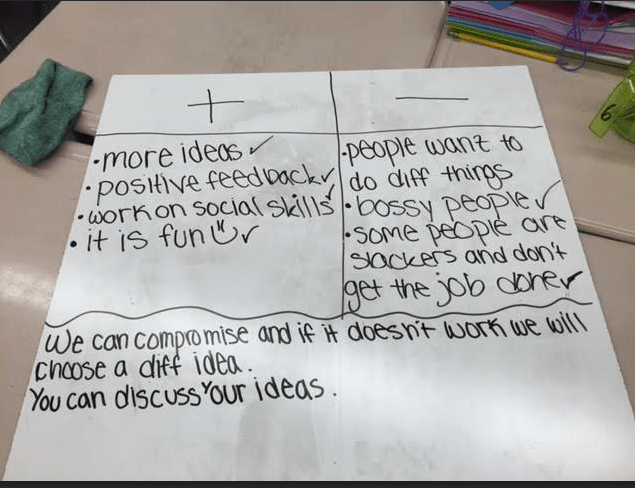 +
• more ideas ✓
• positive feedback ✓
• work on social skills ✓
• it is fun ✓
−
• people want to
do diff things
• bossy people ✓
• some people are
slackers and don't
get the job done ✓
We can compromise and if it doesn't work we will
choose a diff idea.
You can discuss your ideas.
6